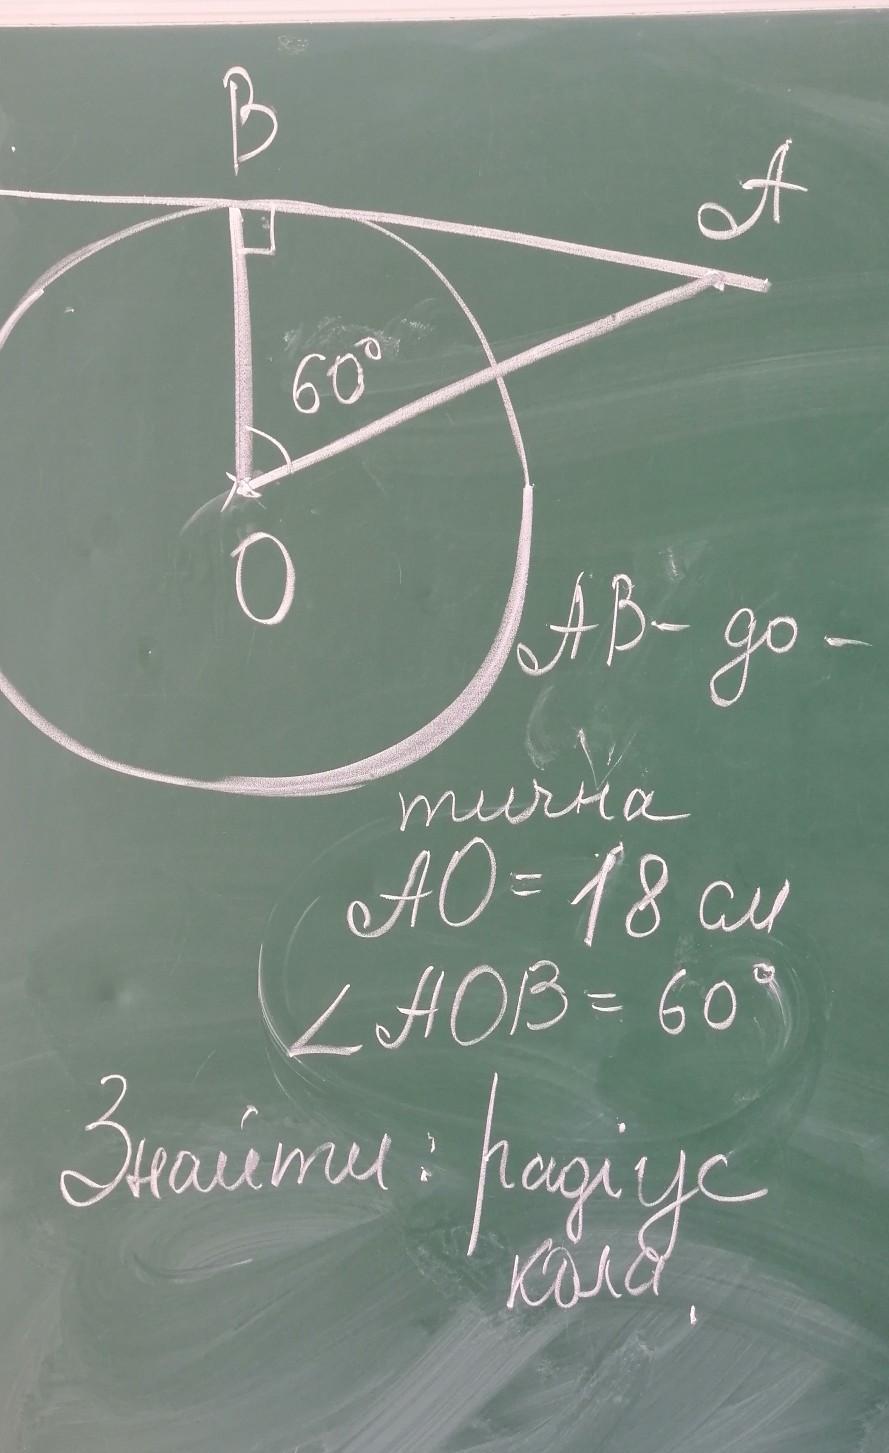 B
A
60°
O
AB - до -
тична
AO = 18 см
∠AOB = 60°
Знайти: радіус
кола.